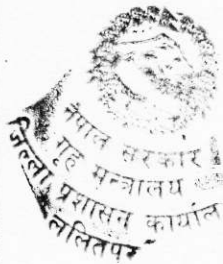 नेपाल सरकार
गृह मन्त्रालय
जिल्ला प्रशासन कार्याल
ललितपुर